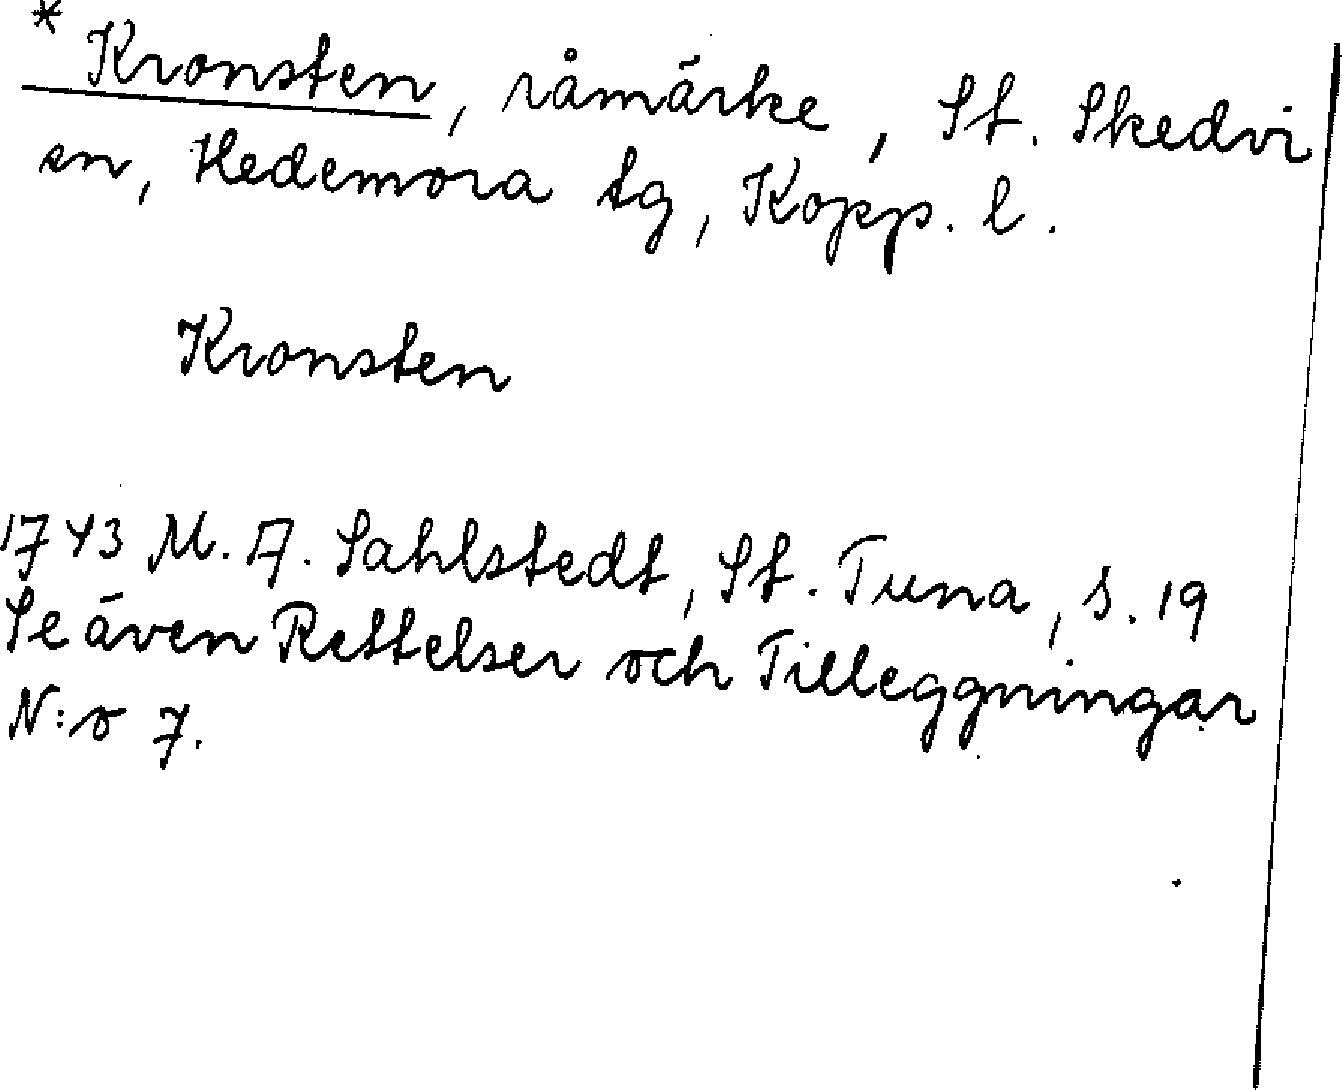 * Kronsten, råmärke, St. Skedvi
sn, Hedemora tg, Kopp. l.
Kronsten
1743 M. A. Sahlstedt, St. Tuna, s. 19
Se även Rettelser och Tilleggningar
N:o 7.